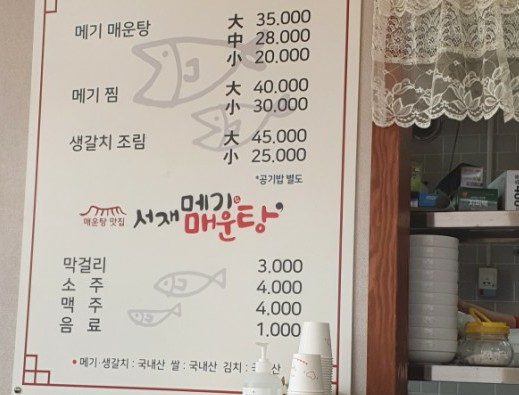 메기 매운탕 大 35.000
中 28.000
小 20.000
메기 찜 大 40.000
小 30.000
생갈치 조림 大 45.000
小 25.000
*공기밥 별도
매운탕 맛집 서재 메기 매운탕
막걸리 3.000
소 주 4.000
맥 주 4.000
음 료 1.000
• 메기·생갈치 : 국내산 쌀 : 국내산 김치 :